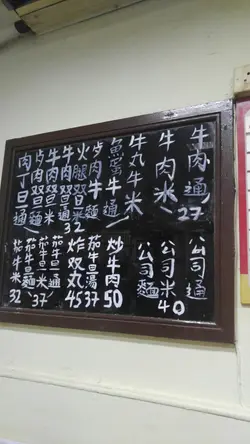 牛肉通
牛肉米
27
牛丸牛米
魚蛋牛通
歺肉牛麵
火腿双旦米
牛肉双旦通
32
牛肉双旦米
歺肉双旦麵
肉丁旦通
公司通
公司米
40
公司麵
炒牛肉
50
炸双丸
45
茄牛旦湯
37
茄牛旦通
茄牛旦麵
37
茄牛米
32